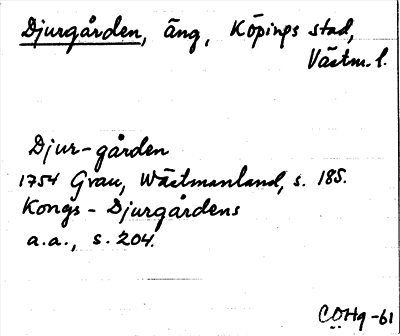 Djurgården, äng, Köpings stad,
Västm. l.
Djur-gården
1754 Grau, Wästmanland, s. 185.
Kongs-Djurgårdens
a.a., s. 204.
COHq -61